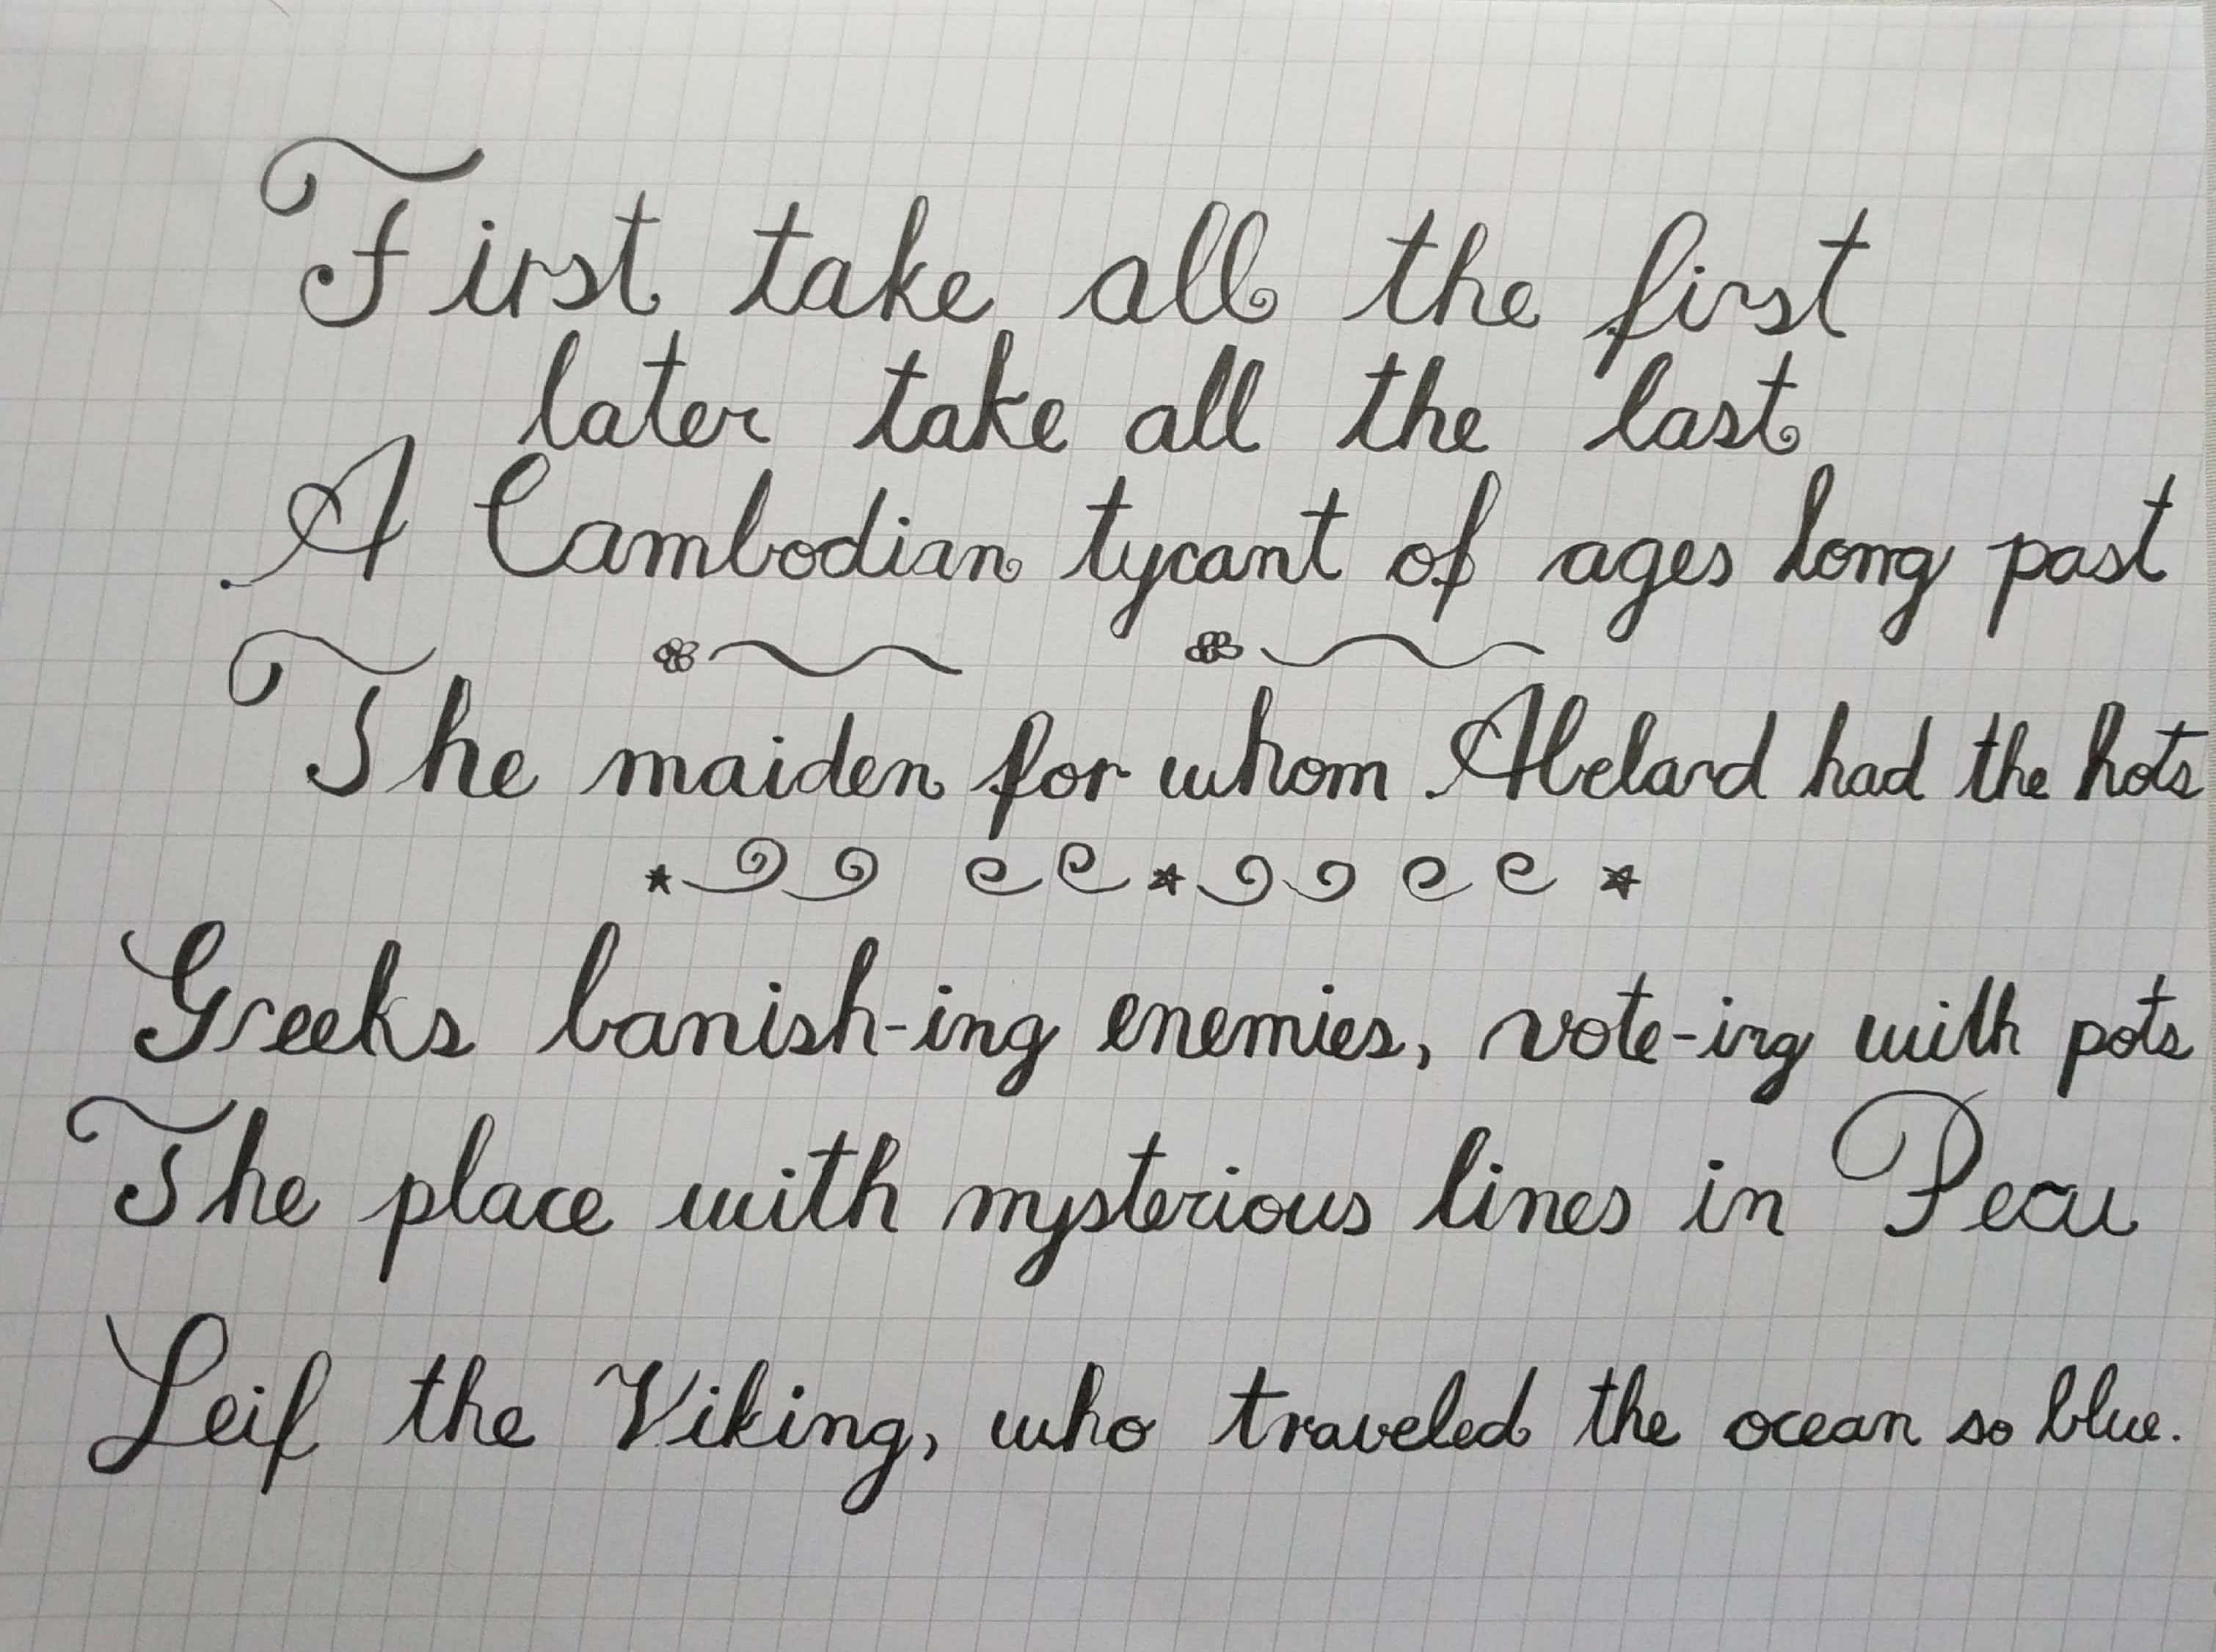 First take all the first
later take all the last
A Cambodian tyrant of ages long past
The maiden for whom Abelard had the hots
Greeks banish-ing enemies, vote-ing with pots
The place with mysterious lines in Peru
Leif the Viking, who traveled the ocean so blue.